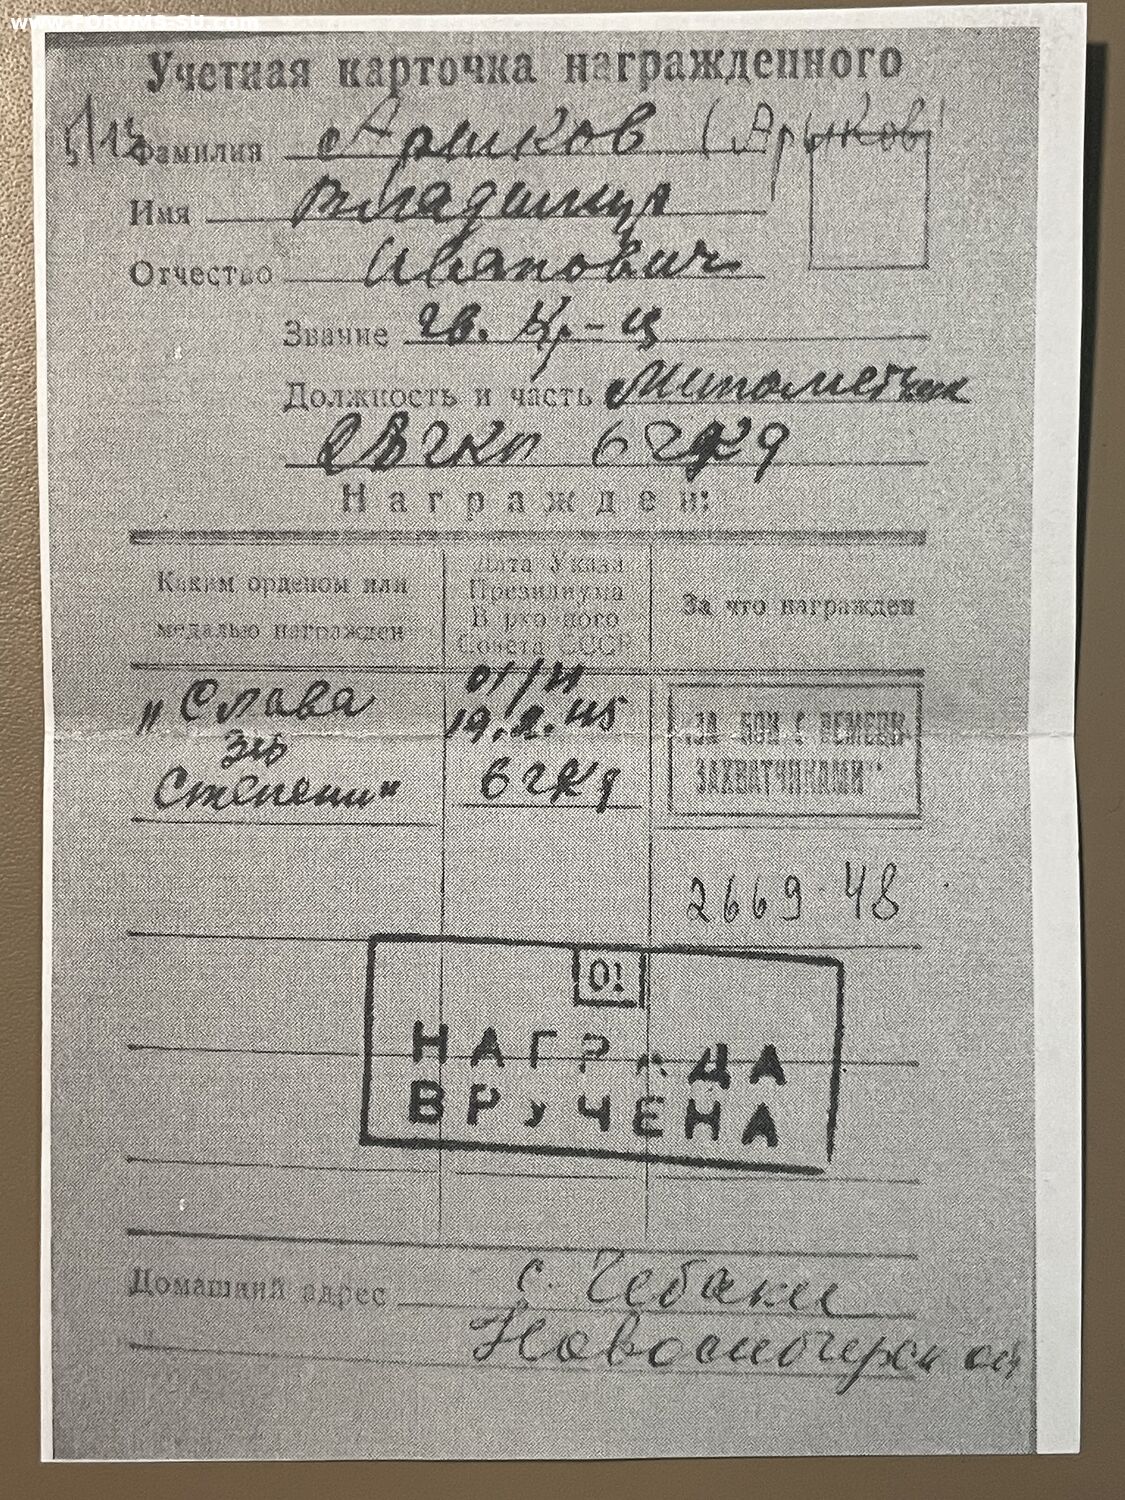 www.FORUMS-SU.com
Учетная карточка награжденного
Фамилия Арыков (Арыков)
Имя Владимир
Отчество Иванович
Звание гв. Кр-ц
Должность и часть Минометчик
28 гкп 6 гкд
Награжден:
Каким орденом или медалью награжден
Дата Указа Президиума В рхо ного Совета СССР
За что награжден
"Слава
3й
Степени"
01/Н
19.2.45
6 гкд
„ЗА БОИ С НЕМЕЦ-
ЗАХВАТЧИКАМИ"
2669 48
01
НАГРАДА
ВРУЧЕНА
Домашний адрес с. Чебаки
Новосибирск